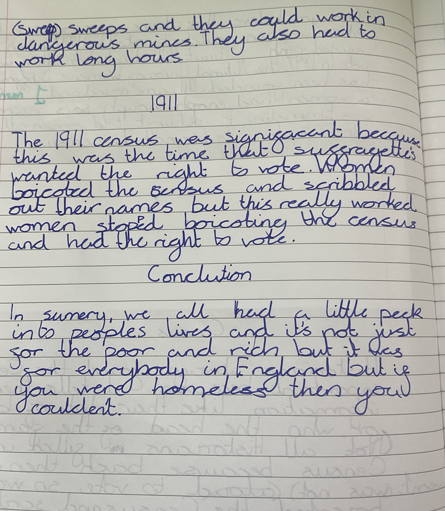 (Swep) sweeps and they could work in
dangerous mines. They also had to
work long hours
1911
The 1911 census was signigacant because
this was the time that suggragettes
wanted the right to vote. Women
boicoted the census and scribbled
out their names but this really worked
women stoped boicoting the census
and had the right to vote.
Conclution
In sumery, we all had a little peek
into peoples lives and it's not just
for the poor and rich but it was
for everybody in England but if
you were homeless then you
couldent.